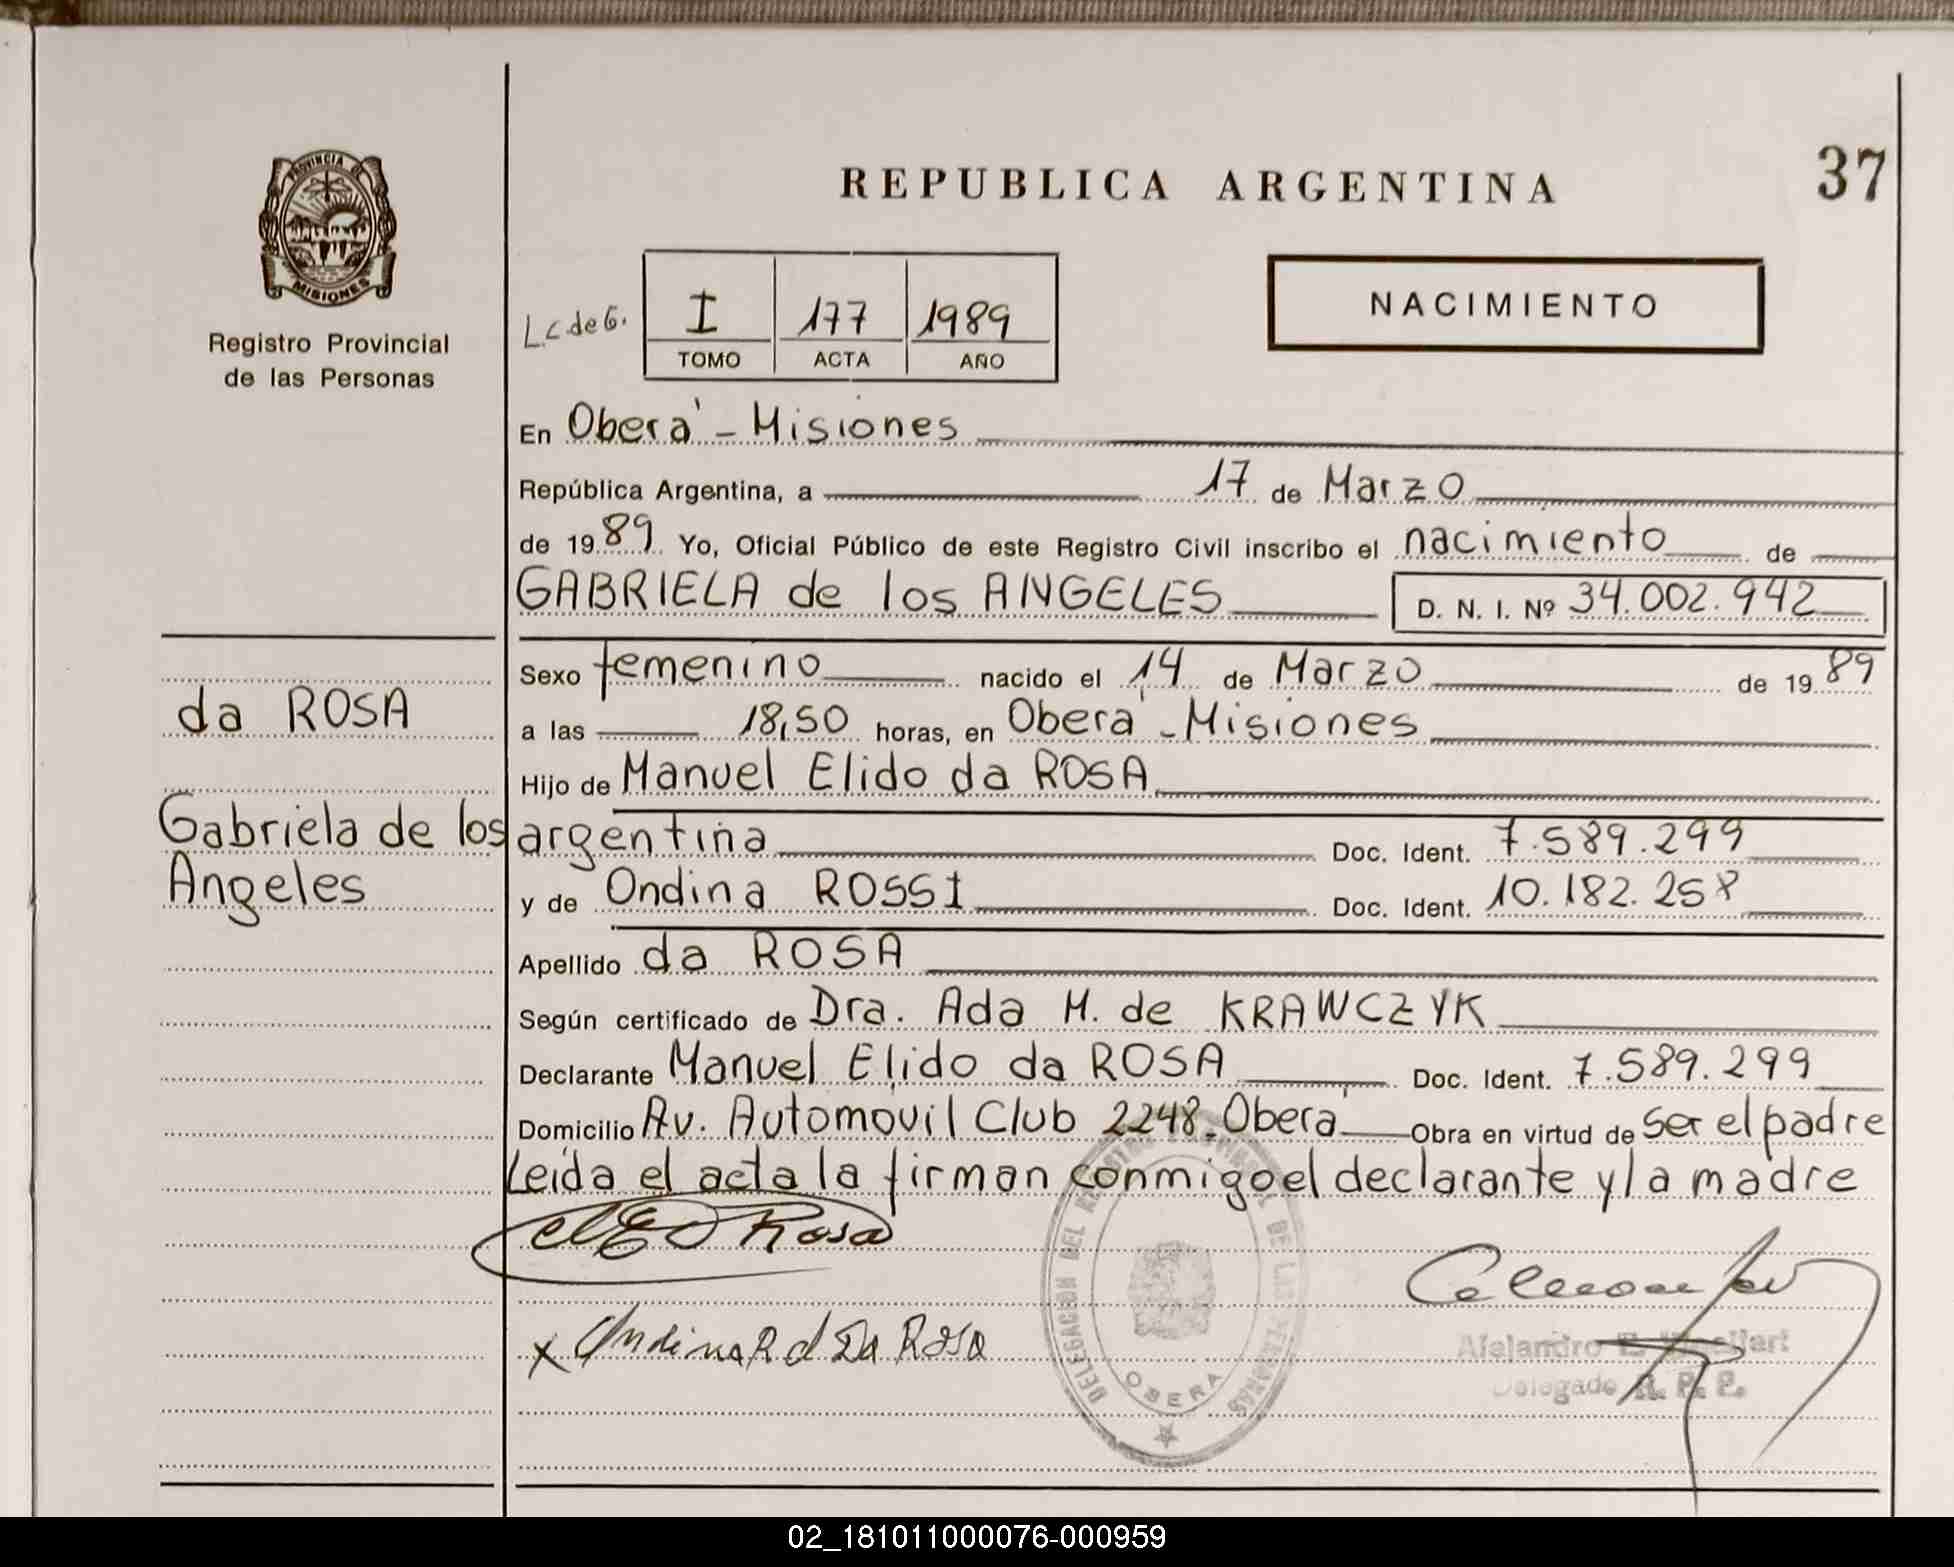 PROVINCIA DE
MISIONES
Registro Provincial
de las Personas
REPUBLICA ARGENTINA
37
L.c.de G.
I 177 1989
TOMO ACTA AÑO
NACIMIENTO
En Oberá - Misiones
República Argentina, a 17 de Marzo
de 19 89 Yo, Oficial Público de este Registro Civil inscribo el nacimiento de
GABRIELA de los ANGELES D. N. I. Nº 34.002.942
da ROSA
Gabriela de los
Angeles
Sexo femenino nacido el 14 de Marzo de 19 89
a las 18,50 horas, en Oberá - Misiones
Hijo de Manuel Elido da ROSA
argentina Doc. Ident. 7.589.299
y de Ondina ROSSI Doc. Ident. 10.182.258
Apellido da ROSA
Según certificado de Dra. Ada M. de KRAWCZYK
Declarante Manuel Elido da ROSA Doc. Ident. 7.589.299
Domicilio Av. Automóvil Club 2248. Oberá Obra en virtud de ser el padre
Leída el acta la firman conmigo el declarante y la madre
Rosa
x Ondina R d Da Rosa
DELEGACION DEL REGISTRO PROVINCIAL DE LAS PERSONAS
OBERA
Alejandro E.
Delegado R. P. P.
02_181011000076-000959